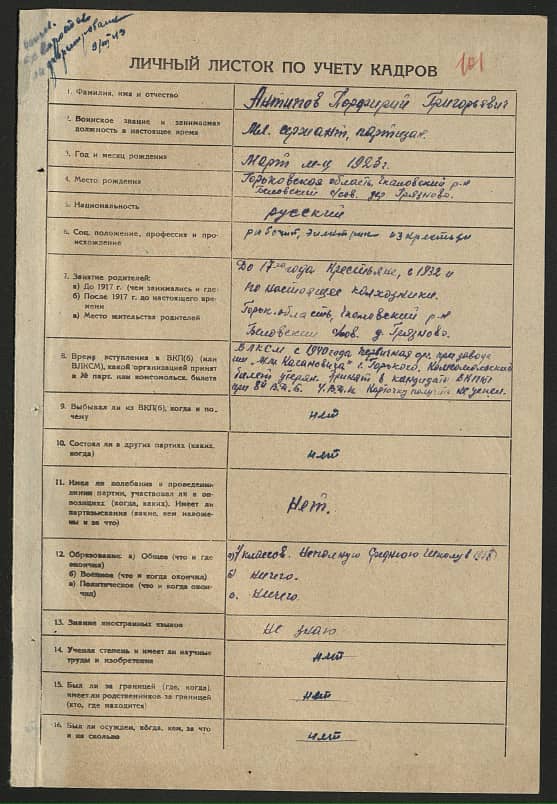 9/VII 43
ЛИЧНЫЙ ЛИСТОК ПО УЧЕТУ КАДРОВ
101
1. Фамилия, имя и отчество
Антипов Порфирий Григорьевич
2. Воинское звание и занимаемая
должность в настоящее время
Мл. сержант, партизан.
3. Год и месяц рождения
Март м-ц 1923 г.
4. Место рождения
Горьковская область, Чкаловский р-н
с/сов. дер. Грязново.
5. Национальность
русский
6. Соц. положение, профессия и про-
исхождение
рабочий, из крестьян
7. Занятие родителей:
а) До 1917 г. (чем занимались и где)
б) После 1917 г. до настоящего вре-
мени
в) Место жительства родителей
До 17го года Крестьяне, с 1932 и
по настоящее колхозники.
Горьк. область, Чкаловский р-н
с/сов. д. Грязново.
8. Время вступления в ВКП(б) (или
ВЛКСМ), какой организацией принят
и № парт. или комсомольск. билета
ВЛКСМ с 1940 года первичная орг. при заводе
им. "Кагановича" г. Горького. Комсомольский
билет утерян. Принят в кандидаты ВКП(б)
при 8й Карточку получить не успел.
9. Выбывал ли из ВКП(б), когда и по-
чему
нет
10. Состоял ли в других партиях (каких,
когда)
нет
11. Имел ли колебания в проведении
линии партии, участвовал ли в оп-
позициях (когда, каких). Имеет ли
партвзыскания (какие, кем наложе-
ны и за что)
Нет.
12. Образование: а) Общее (что и где
окончил)
б) Военное (что и когда окончил)
в) Политическое (что и когда окон-
чил)
а) 7 классов. Неполную Среднюю Школу в
б) Ничего.
в. Ничего
13. Знание иностранных языков
Не знаю
14. Ученая степень и имеет ли научные
труды и изобретения
нет
15. Был ли за границей (где, когда),
имеет ли родственников за границей
(кто, где находится)
нет
16. Был ли осужден, когда, кем, за что
и на сколько
нет